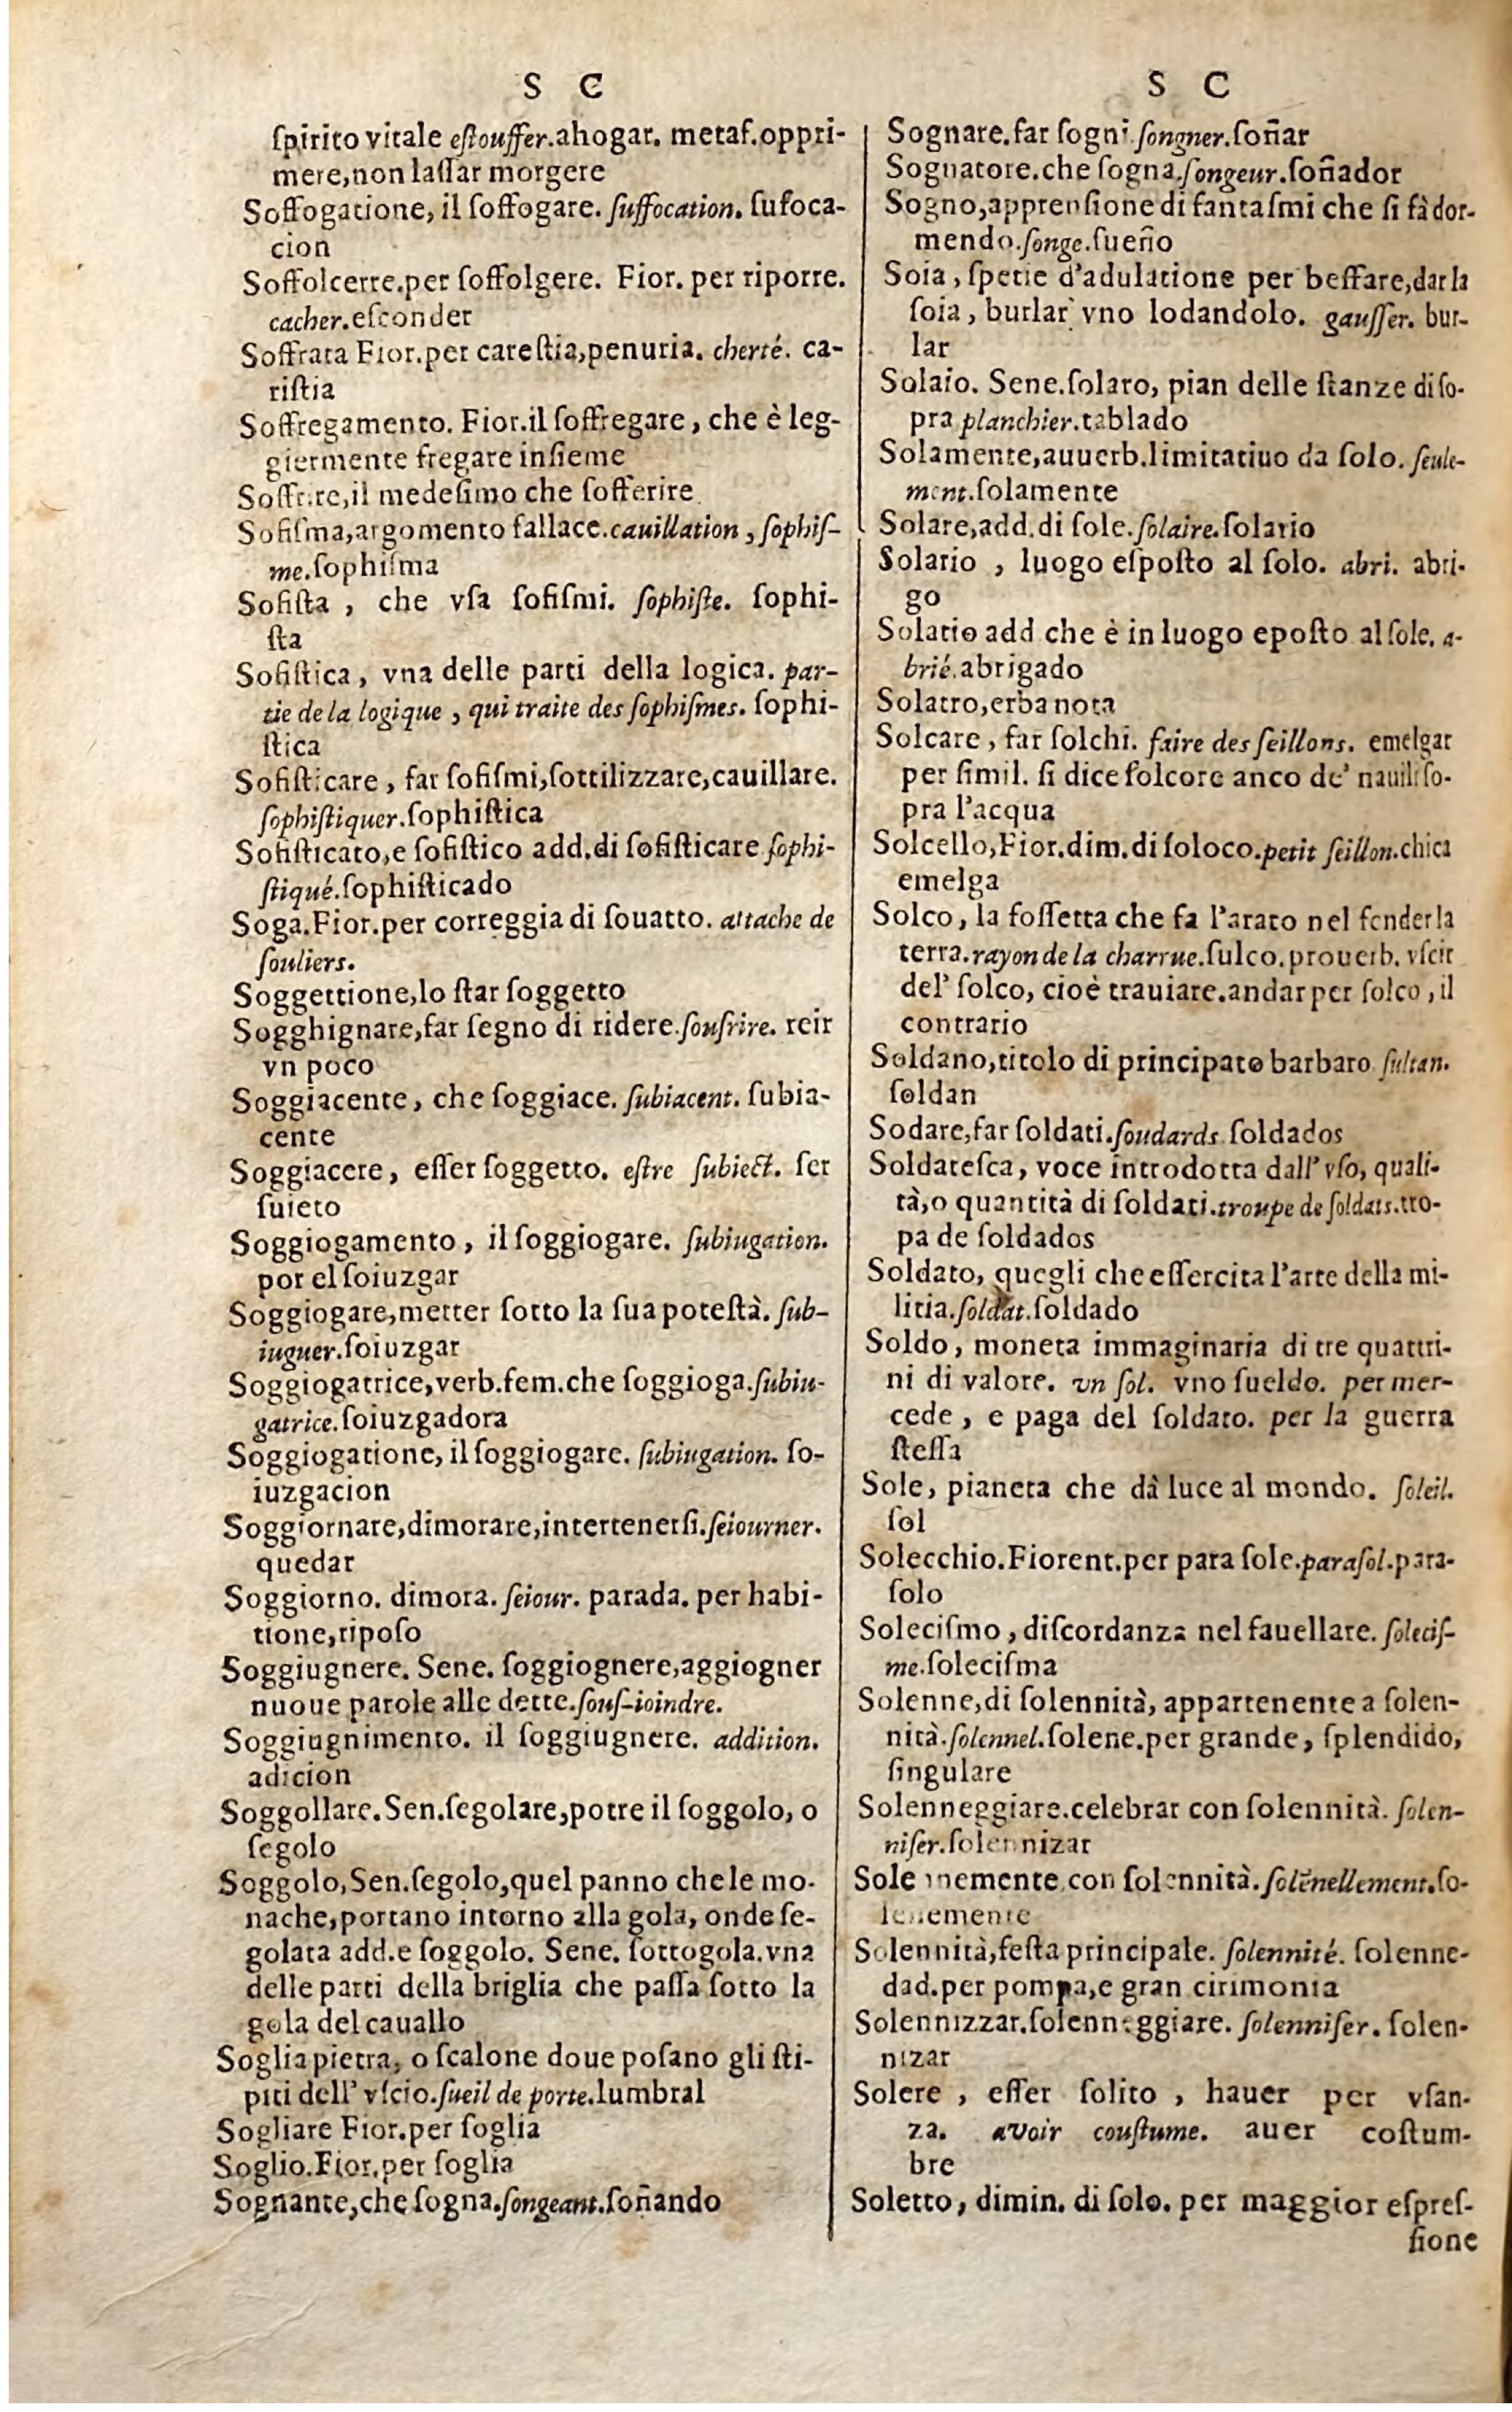 S C
ſpirito vitale eſtouffer.ahogar. metaf.oppri-
mere,non laſſar morgere
Soffogatione, il ſoffogare. ſuffocation. ſufoca-
cion
Soffolcerre.per ſoffolgere. Fior. per riporre.
cacher.eſconder
Soffrata Fior.per careſtia,penuria. cherté. ca-
riſtia
Soffregamento. Fior.il ſoffregare, che è leg-
giermente fregare inſieme
Soffrire,il medeſimo che ſofferire
Sofiſma,argomento fallace.cauillation, ſophiſ-
me.ſophiſma
Sofiſta, che vſa ſofiſmi. ſophiſte. ſophi-
ſta
Sofiſtica, vna delle parti della logica. par-
tie de la logique, qui traite des ſophiſmes. ſophi-
ſtica
Sofiſticare, far ſofiſmi,ſottilizzare,cauillare.
ſophiſtiquer.ſophiſtica
Sofiſticato,e ſofiſtico add.di ſofiſticare ſophi-
ſtiqué.ſophiſticado
Soga.Fior.per correggia di ſouatto. attache de
ſouliers.
Soggettione,lo ſtar ſoggetto
Sogghignare,far ſegno di ridere.ſouſrire. reir
vn poco
Soggiacente, che ſoggiace. ſubiacent. ſubia-
cente
Soggiacere, eſſer ſoggetto. eſtre ſubiect. ſer
ſuieto
Soggiogamento, il ſoggiogare. ſubiugation.
por el ſoiuzgar
Soggiogare,metter ſotto la ſua poteſtà. ſub-
iuguer.ſoiuzgar
Soggiogatrice,verb.fem.che ſoggioga.ſubiu-
gatrice.ſoiuzgadora
Soggiogatione, il ſoggiogare. ſubiugation. ſo-
iuzgacion
Soggiornare,dimorare,intertenerſi.ſeiourner.
quedar
Soggiorno. dimora. ſeiour. parada. per habi-
tione,ripoſo
Soggiugnere. Sene. ſoggiognere,aggiogner
nuoue parole alle dette.ſouſ-ioindre.
Soggiugnimento. il ſoggiugnere. addition.
adicion
Soggollare.Sen.ſegolare,potre il ſoggolo, o
ſegolo
Soggolo,Sen.ſegolo,quel panno che le mo-
nache,portano intorno alla gola, onde ſe-
golata add.e ſoggolo. Sene. ſottogola.vna
delle parti della briglia che paſſa ſotto la
gola del cauallo
Soglia pietra, o ſcalone doue poſano gli ſti-
piti dell' vſcio.ſueil de porte.lumbral
Sogliare Fior.per ſoglia
Soglio.Fior.per ſoglia
Sognante,che ſogna.ſongeant.ſoñando
S C
Sognare.far ſogni.ſongner.ſoñar
Sognatore.che ſogna.ſongeur.ſoñador
Sogno,apprenſione di fantaſmi che ſi fà dor-
mendo.ſonge.ſueño
Soia, ſpetie d'adulatione per beffare,dar la
ſoia, burlar vno lodandolo. gauſſer. bur-
lar
Solaio. Sene.ſolaro, pian delle ſtanze di ſo-
pra planchier.tablado
Solamente,auuerb.limitatiuo da ſolo. ſeule-
ment.ſolamente
Solare,add.di ſole.ſolaire.ſolario
Solario, luogo eſpoſto al ſolo. abri. abri-
go
Solatio add che è in luogo epoſto al ſole. a-
brié.abrigado
Solatro,erba nota
Solcare, far ſolchi. faire des ſeillons. emelgar
per ſimil. ſi dice ſolcore anco de' nauili ſo-
pra l'acqua
Solcello,Fior.dim.di ſoloco.petit ſeillon.chica
emelga
Solco, la foſſetta che fa l'arato nel fender la
terra.rayon de la charrue.ſulco.prouerb. vſcir
del' ſolco, cioè trauiare.andar per ſolco, il
contrario
Soldano,titolo di principato barbaro ſultan.
ſoldan
Sodare,far ſoldati.ſoudards ſoldados
Soldateſca, voce introdotta dall' vſo, quali-
tà,o quantità di ſoldati.troupe de ſoldats.tro-
pa de ſoldados
Soldato, quegli che eſſercita l'arte della mi-
litia.ſoldat.ſoldado
Soldo, moneta immaginaria di tre quattri-
ni di valore. vn ſol. vno ſueldo. per mer-
cede, e paga del ſoldato. per la guerra
ſteſſa
Sole, pianeta che dà luce al mondo. ſoleil.
ſol
Solecchio.Fiorent.per para ſole.paraſol.para-
ſolo
Soleciſmo, diſcordanza nel fauellare. ſoleciſ-
me.ſoleciſma
Solenne,di ſolennità, appartenente a ſolen-
nità.ſolennel.ſolene.per grande, ſplendido,
ſingulare
Solenneggiare.celebrar con ſolennità. ſolen-
niſer.ſolennizar
Solennemente con ſolennità.ſolēnellement.ſo-
lenemente
Solennità,feſta principale. ſolennité. ſolenne-
dad.per pompa,e gran cirimonia
Solennizzar.ſolenneggiare. ſolenniſer. ſolen-
nizar
Solere, eſſer ſolito, hauer per vſan-
za. avoir couſtume. auer coſtum-
bre
Soletto, dimin. di ſolo. per maggior eſpreſ-
ſione